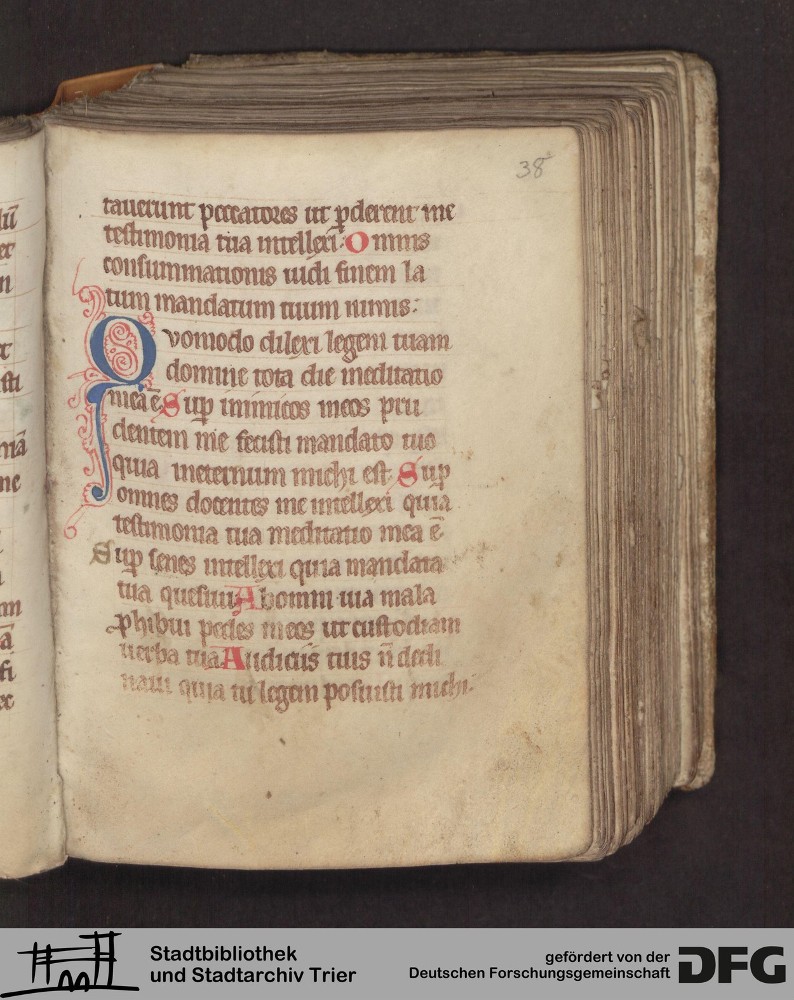 38
tauerunt peccatores ut ꝑderent me
testimonia tua intellexi: Omnis
consummationis uidi finem la
tum mandatum tuum nimis:
Quomodo dilexi legem tuam
domine tota die meditatio
mea ē Suꝑ inimicos meos pru
dentem me fecisti mandato tuo
quia ineternum michi est Suꝑ
omnes docentes me intellexi quia
testimonia tua meditatio mea ē
Suꝑ senes intellexi quia mandata
tua quesiui Ab omni uia mala
ꝓhibui pedes meos ut custodiam
uerba tua A iudiciis tuis n̄ decli
naui quia tu legem posuisti michi:
Stadtbibliothek
und Stadtarchiv Trier
gefördert von der
Deutschen Forschungsgemeinschaft
DFG